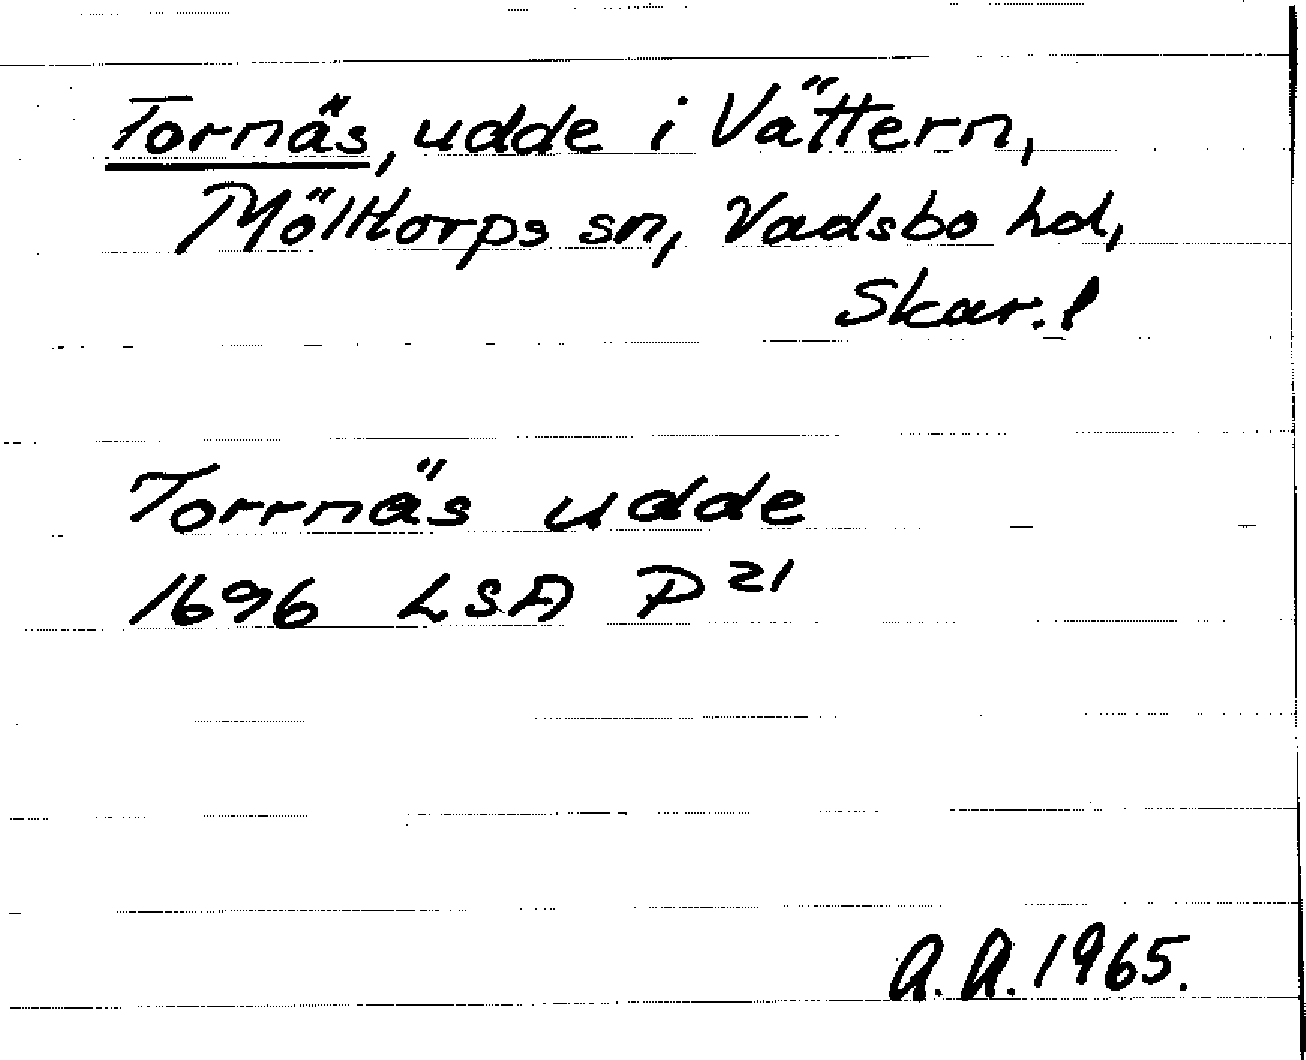 Tornäs, udde i Vättern,
Mölltorps sn, Vadsbo hd,
Skar. l
Torrnäs udde
1696 LSA P 21
A. A. 1965.